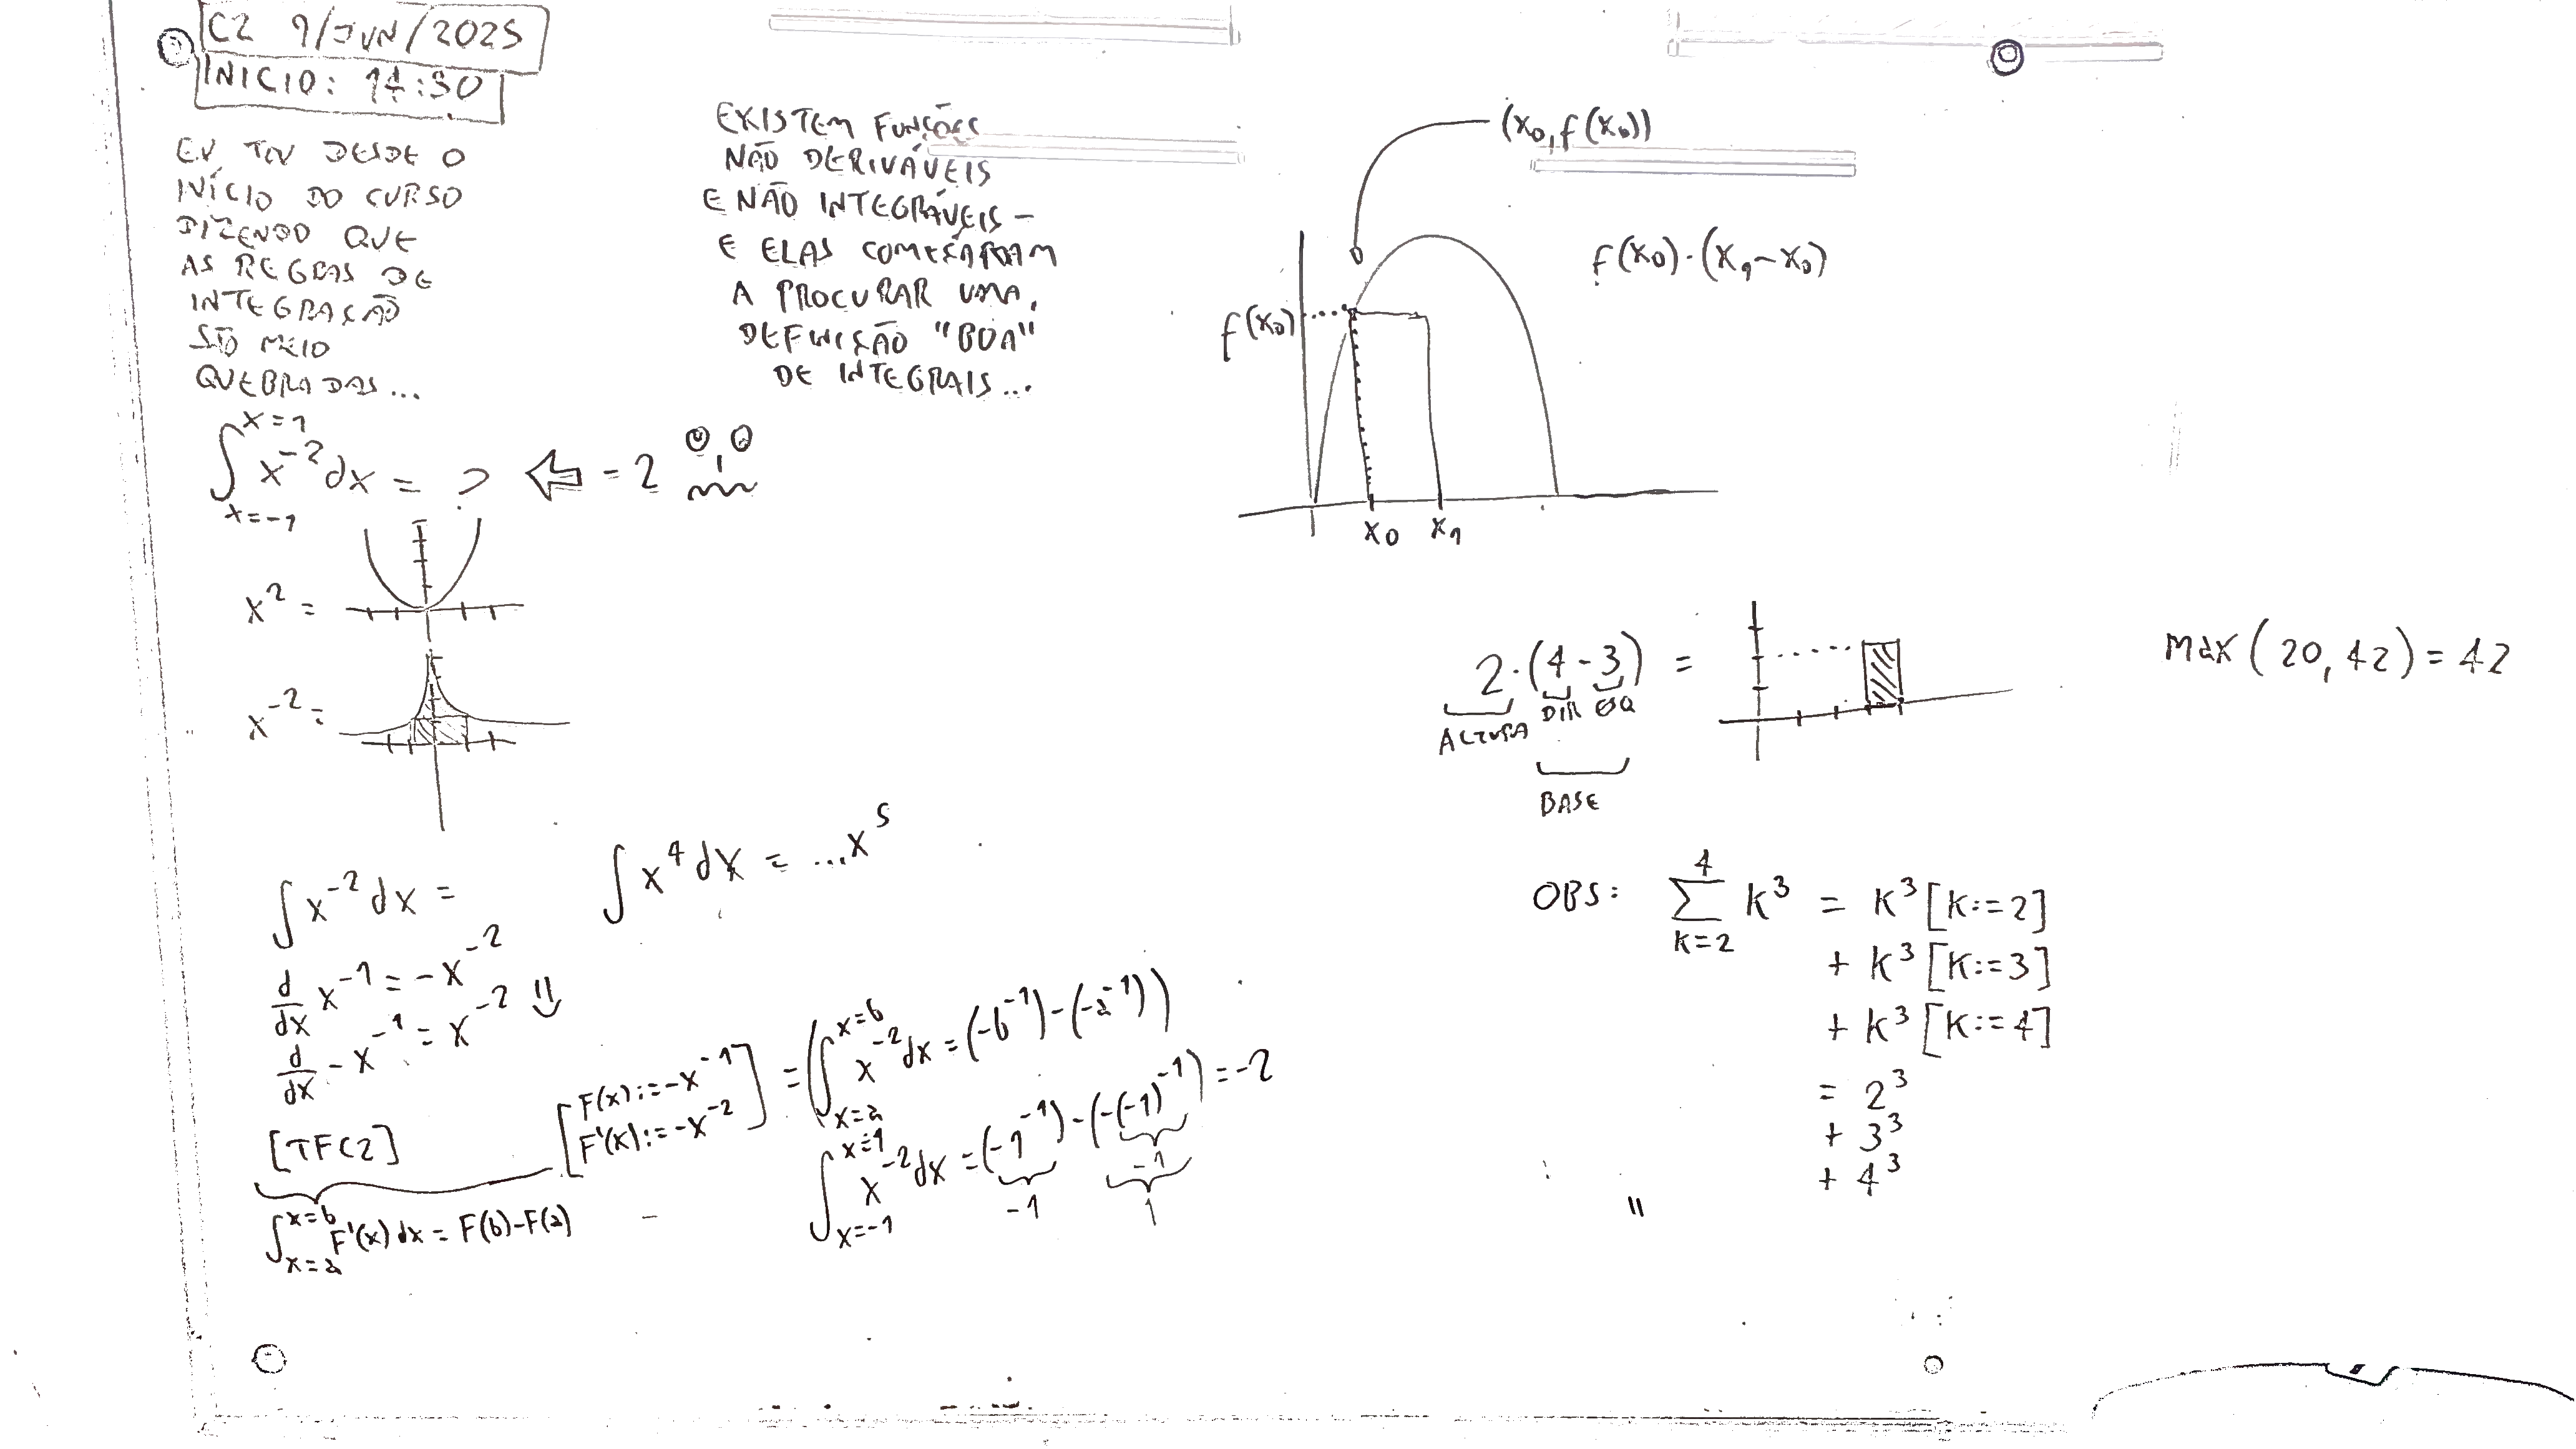 C2 9/JUN/2025
INICIO: 14:30
EU TOU DESDE O
INÍCIO DO CURSO
DIZENDO QUE
AS REGRAS DE
INTEGRAÇÃO
SÃO MEIO
QUEBRADAS...
∫_{x=-1}^{x=1} x^{-2} dx = ? ⇐ = 2
x^2 =
x^{-2} =
∫ x^{-2} dx =
∫ x^4 dx = ...x^5
d/dx x^{-1} = -x^{-2}
d/dx -x^{-1} = x^{-2}
[TFC2] [F(x):=-x^{-1}
F'(x):=-x^{-2}] = (∫_{x=a}^{x=b} x^{-2} dx = (-b^{-1})-(-a^{-1}))
∫_{x=a}^{x=b} F'(x) dx = F(b)-F(a)
∫_{x=-1}^{x=1} x^{-2} dx = (-1^{-1})-(-(-1)^{-1}) = -2
-1 -1
1
EXISTEM FUNÇÕES
NÃO DERIVÁVEIS
E NÃO INTEGRÁVEIS –
E ELAS COMEÇARAM
A PROCURAR UMA
DEFINIÇÃO "BOA"
DE INTEGRAIS...
(x_0, f(x_0))
f(x_0)·(x_1-x_0)
f(x_0)
x_0 x_1
2·(4-3) =
ALTURA DIR ESQ
BASE
MAX(20,42)=42
OBS: ∑_{k=2}^{4} k^3 = k^3[k:=2]
+ k^3[k:=3]
+ k^3[k:=4]
= 2^3
+ 3^3
+ 4^3